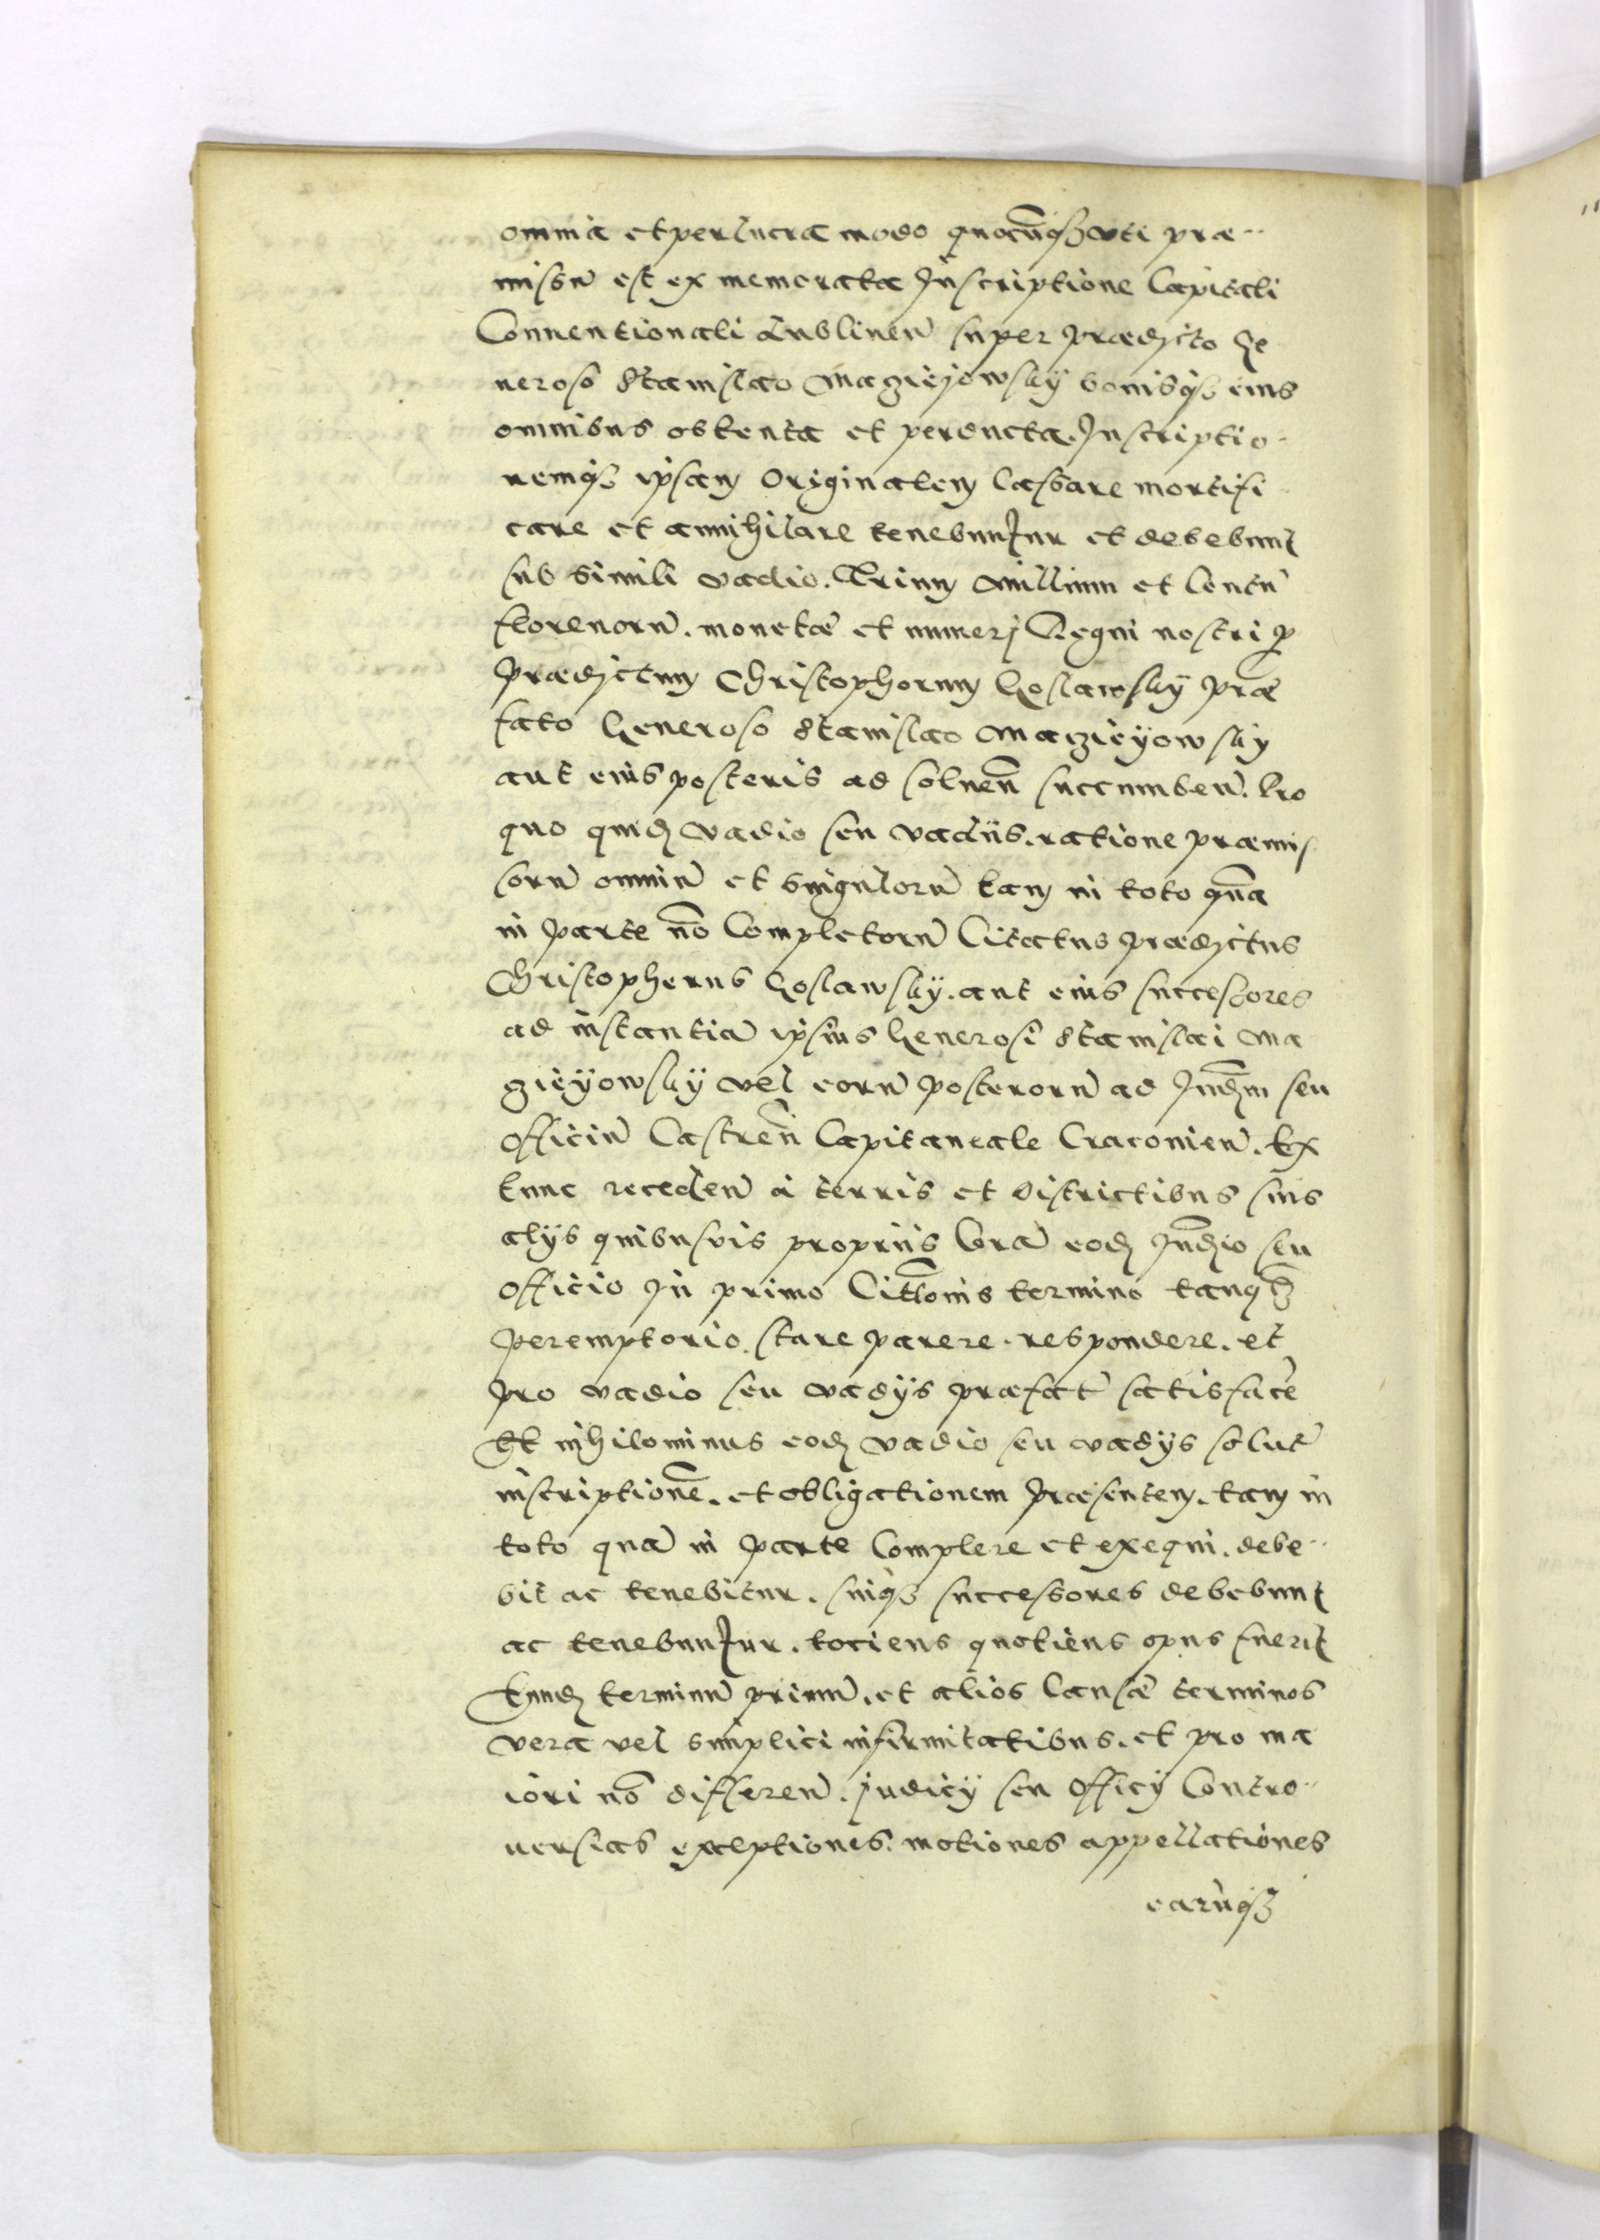 omnia et perlucra modo quocunqꝫ uti præ-
missũ est ex memorata Inscriptione Capitali
Conuentionali Lublinen̄ super prædicto Ge
neroso Stanislao Maczieiowsky bonisqꝫ eius
omnibus obtenta et perducta. Inscriptio-
nemqꝫ ipsam Originalem Cassare mortifi
care et annihilare tenebuntur et debebunt
sub simili vadio. Trium Millium et Centũ
florenorũ. monetæ et numeri Regni nostri ꝑ
Prædictum Christophorum Goslawsky præ
fato Generoso Stanislao Macziẏowsky
aut eius posteris ad soluen̄ succumben̄. Pro
quo quidẽ vadio seu vadiis. ratione præmis
sorũ omniũ et singulorũ tam in toto quã
in parte nõ Completorũ Citatus prædictus
Christophorus Goslawsky. aut eius successores
ad instantiã ipsius Generosi Stanislai Ma
czieẏowsky vel eorũ posterorũ ad Iudm̃ seu
Officiũ Castren̄ Capitaneale Cracouien̄. Ex
tunc receden̄ à terris et districtibus suis
alijs quibusuis propriis Corã eodẽ Iudio seu
officio In primo Citt̃onis termino tanqꝫ
peremptorio. stare parere. respondere. et
pro vadio seu vadijs præfat̃ satisface͂
Et nihilominus eodẽ vadio seu vadijs solut̃
inscriptionẽ. et obligationem præsentem. tam in
toto quã in parte Complere et exequi. debe-
bit ac tenebitur. suiqꝫ successores debebunt
ac tenebuntur. tociens quotiens opus fuerit
Eundẽ terminũ primũ. et alios Causæ terminos
vera vel simplici infirmitatibus. et pro ma
iori nõ differen̄. judicij seu Officij Contro-
uersias exceptiones. motiones appellationes
earũqꝫ